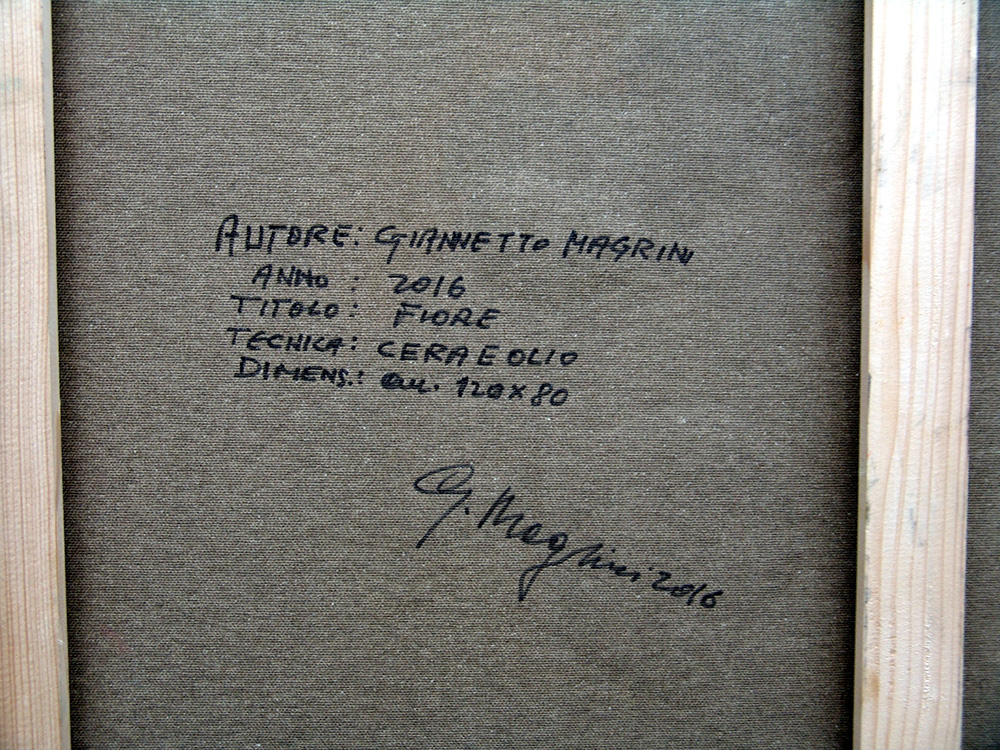 AUTORE: GIANNETTO MAGRINI
ANNO : 2016
TITOLO: FIORE
TECNICA: CERA E OLIO
DIMENS.: cm. 120x80
G. Magrini 2016